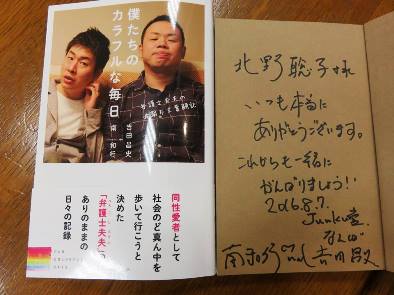 僕たちの
カラフルな毎日
弁護士夫夫の
吉田昌史
南 和行
同性愛者として
社会のど真ん中を
歩いて行こうと
決めた
「弁護士夫夫」の
ありのままの
日々の記録
北野聡子様
いつも本当に
ありがとうございます。
これからも一緒に
がんばりましょう!!
2016.8.7.
Junku堂
なんば
南和行 and 吉田昌史